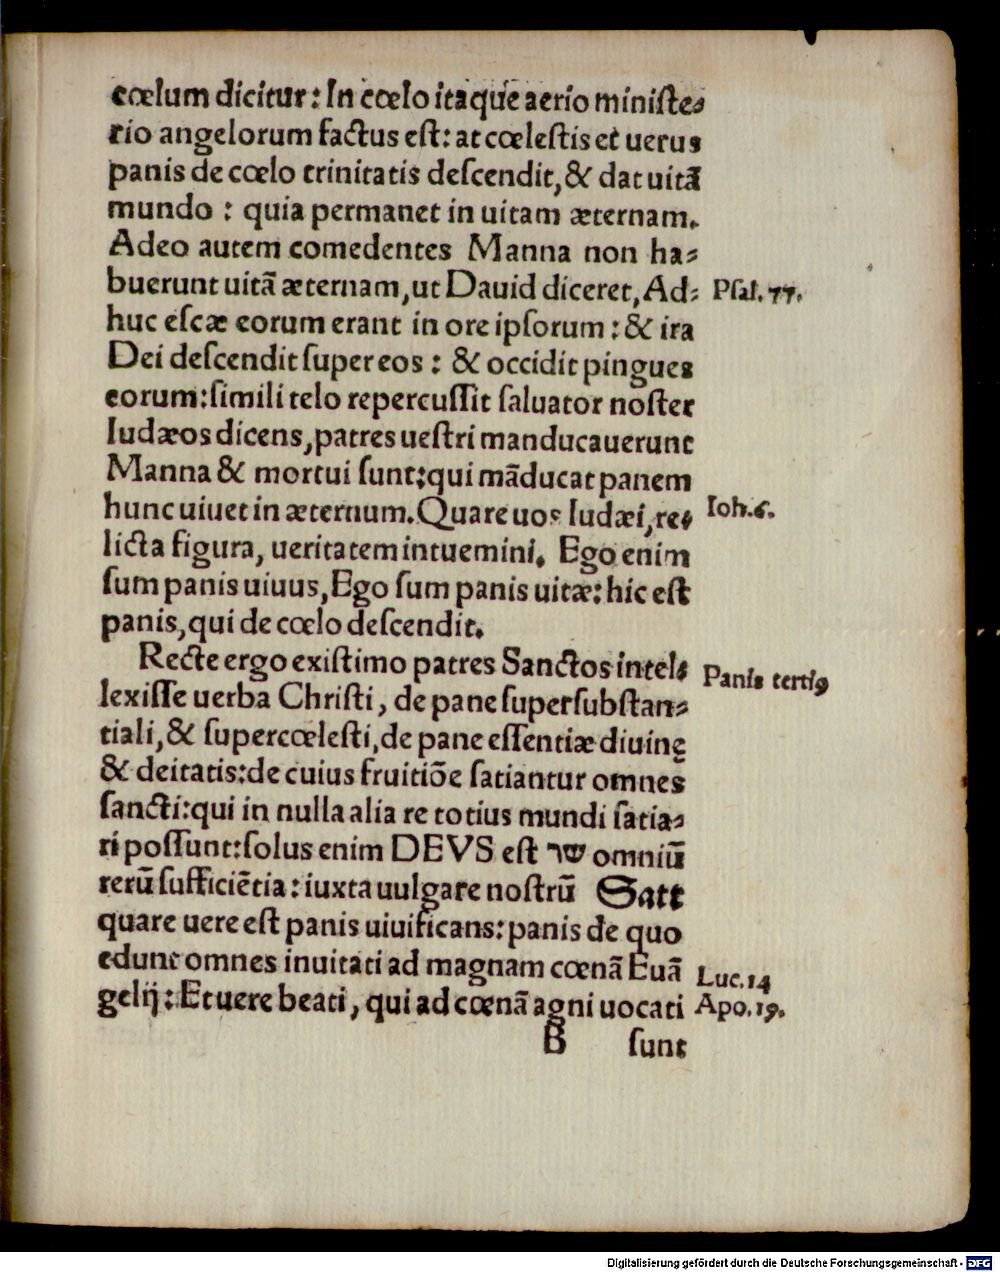 cœlum dicitur: In cœlo itaque aerio ministe⸗
rio angelorum factus est: at cœlestis et uerus
panis de cœlo trinitatis descendit, & dat uitã
mundo : quia permanet in uitam æternam.
Adeo autem comedentes Manna non ha⸗
buerunt uitã æternam, ut Dauid diceret, Ad⸗ Psal. 77.
huc escæ eorum erant in ore ipsorum : & ira
Dei descendit super eos : & occidit pingues
eorum: simili telo repercussit saluator noster
Iudæos dicens, patres uestri manducauerunt
Manna & mortui sunt: qui mãducat panem
hunc uiuet in æternum. Quare uos Iudæi, re⸗ Ioh. 6.
licta figura, ueritatem intuemini. Ego enim
sum panis uiuus, Ego sum panis uitæ: hic est
panis, qui de cœlo descendit.
Recte ergo existimo patres Sanctos intel⸗ Panis tertiꝰ
lexisse uerba Christi, de pane supersubstan⸗
tiali, & supercœlesti, de pane essentiæ diuinę
& deitatis: de cuius fruitiõe satiantur omnes
sancti: qui in nulla alia re totius mundi satia⸗
ri possunt: solus enim DEVS est שר omniũ
rerũ sufficiẽtia: iuxta uulgare nostrũ Satt
quare uere est panis uiuificans: panis de quo
edunt omnes inuitati ad magnam cœnã Euã Luc. 14
gelij: Et uere beati, qui ad cœnã agni uocati Apo. 19.
B sunt
Digitalisierung gefördert durch die Deutsche Forschungsgemeinschaft - DFG